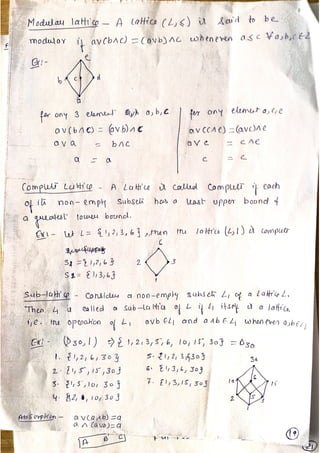 Modular lattice - A lattice (L,≤) is said to be
modular if av(b∧c) = (avb)∧c whenever a≤c ∀ a,b,c ∈ L
Ex:-
e
b c d
a
for any 3 element a, b, c
for any element a, c, e
av(b∧c) = (avb)∧c
av(c∧e) = (avc)∧e
ava = b∧c
avc = c∧e
a = a
c = c
Complete Lattice - A Lattice is called Complete if each
of its non-empty subsets has a least upper bound &
a greatest lower bound.
Ex:- let L = {1,2,3,6}, then the lattice (L,|) is complete
S1 = {1,2,6}
S2 = {1,3,6}
6
2 3
1
Sub-lattice - Consider a non-empty subset L1 of a lattice L.
Then L1 is called a sub-lattice of L if L1 itself is a lattice
i.e. the operation of L1 avb ∈ L1 and a∧b ∈ L1 whenever a,b ∈ L1
Ex:- (D30, |) ⇒ {1,2,3,5,6,10,15,30} = D30
1. {1,2,6,30}
5. {1,2,3,6,30}
2. {1,5,15,30}
6. {1,3,6,30}
3. {1,5,10,30}
7. {1,3,15,30}
4. {2, 10, 30}
30
6 15
10
2 5
1
Absorption - av(a∧b)=a
a∧(avb)=a
A B C
19